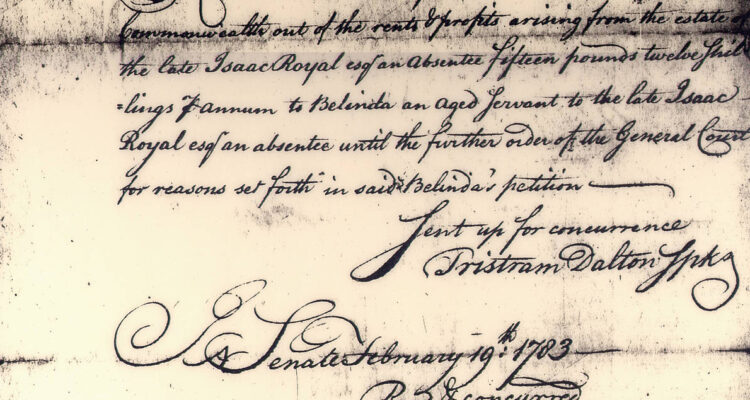 Commonwealth out of the rents & profits arising from the estate of
the late Isaac Royal esqr an absentee fifteen pounds twelve shil
=lings ⅌ annum to Belinda an aged servant to the late Isaac
Royal esqr an absentee until the further order of the General Court
for reasons set forth in said Belinda's petition —
Sent up for concurrence
Tristram Dalton Spkr
In Senate February 19th 1783 —
Read & concurred